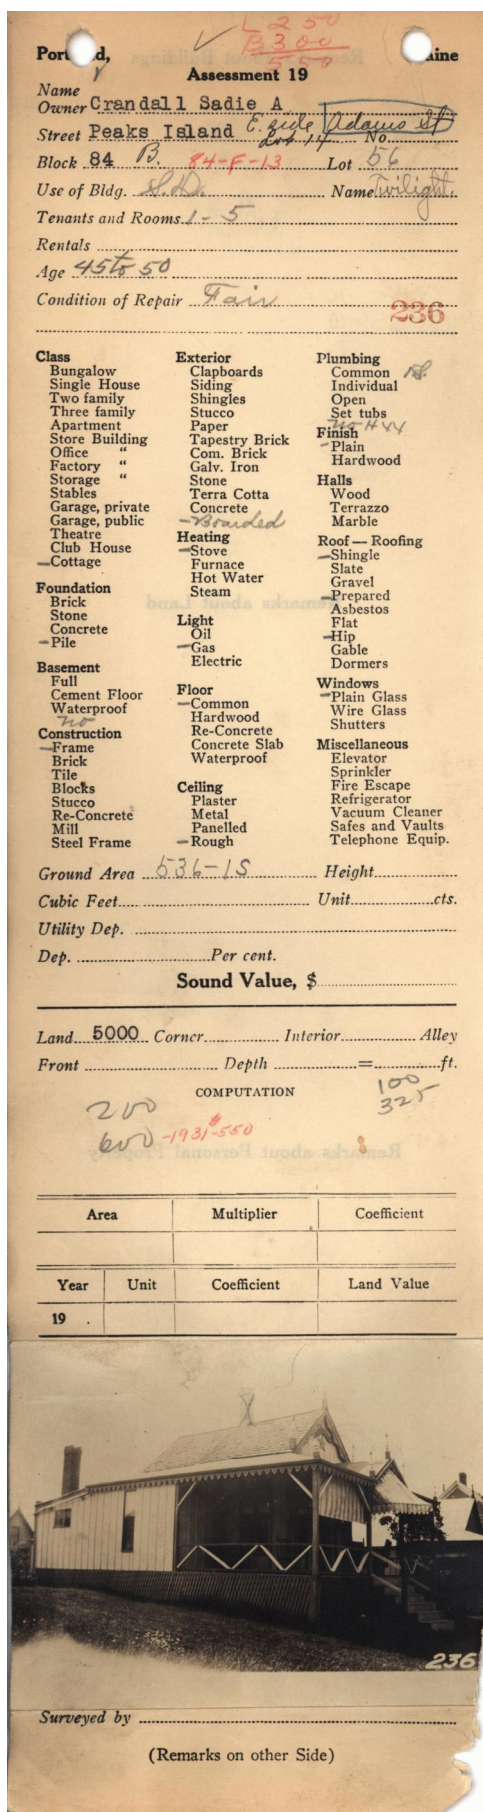 L 250
B 300
550
Port d, aine
Assessment 19
Name
Owner Crandall Sadie A
Street Peaks Island E. side Adams St No.
Block 84 B. 84-F-13 Lot 56
Use of Bldg. S.D. Name Twilight.
Tenants and Rooms 1-5
Rentals
Age 45 to 50
Condition of Repair Fair
236
Class
Bungalow
Single House
Two family
Three family
Apartment
Store Building
Office "
Factory "
Storage "
Stables
Garage, private
Garage, public
Theatre
Club House
-Cottage
Foundation
Brick
Stone
Concrete
-Pile
Basement
Full
Cement Floor
Waterproof
no
Construction
-Frame
Brick
Tile
Blocks
Stucco
Re-Concrete
Mill
Steel Frame
Exterior
Clapboards
Siding
Shingles
Stucco
Paper
Tapestry Brick
Com. Brick
Galv. Iron
Stone
Terra Cotta
Concrete
-Boarded
Heating
-Stove
Furnace
Hot Water
Steam
Light
Oil
-Gas
Electric
Floor
-Common
Hardwood
Re-Concrete
Concrete Slab
Waterproof
Ceiling
Plaster
Metal
Panelled
-Rough
Plumbing
Common
Individual
Open
Set tubs
no
Finish
-Plain
Hardwood
Halls
Wood
Terrazzo
Marble
Roof—Roofing
-Shingle
Slate
Gravel
-Prepared
Asbestos
Flat
-Hip
Gable
Dormers
Windows
-Plain Glass
Wire Glass
Shutters
Miscellaneous
Elevator
Sprinkler
Fire Escape
Refrigerator
Vacuum Cleaner
Safes and Vaults
Telephone Equip.
Ground Area 536-1S Height
Cubic Feet Unit cts.
Utility Dep.
Dep. Per cent.
Sound Value, $
Land 5000 Corner Interior Alley
Front Depth = ft.
COMPUTATION
100
325
200
600 -1931 $550
Area Multiplier Coefficient
Year Unit Coefficient Land Value
19 .
236
Surveyed by
(Remarks on other Side)